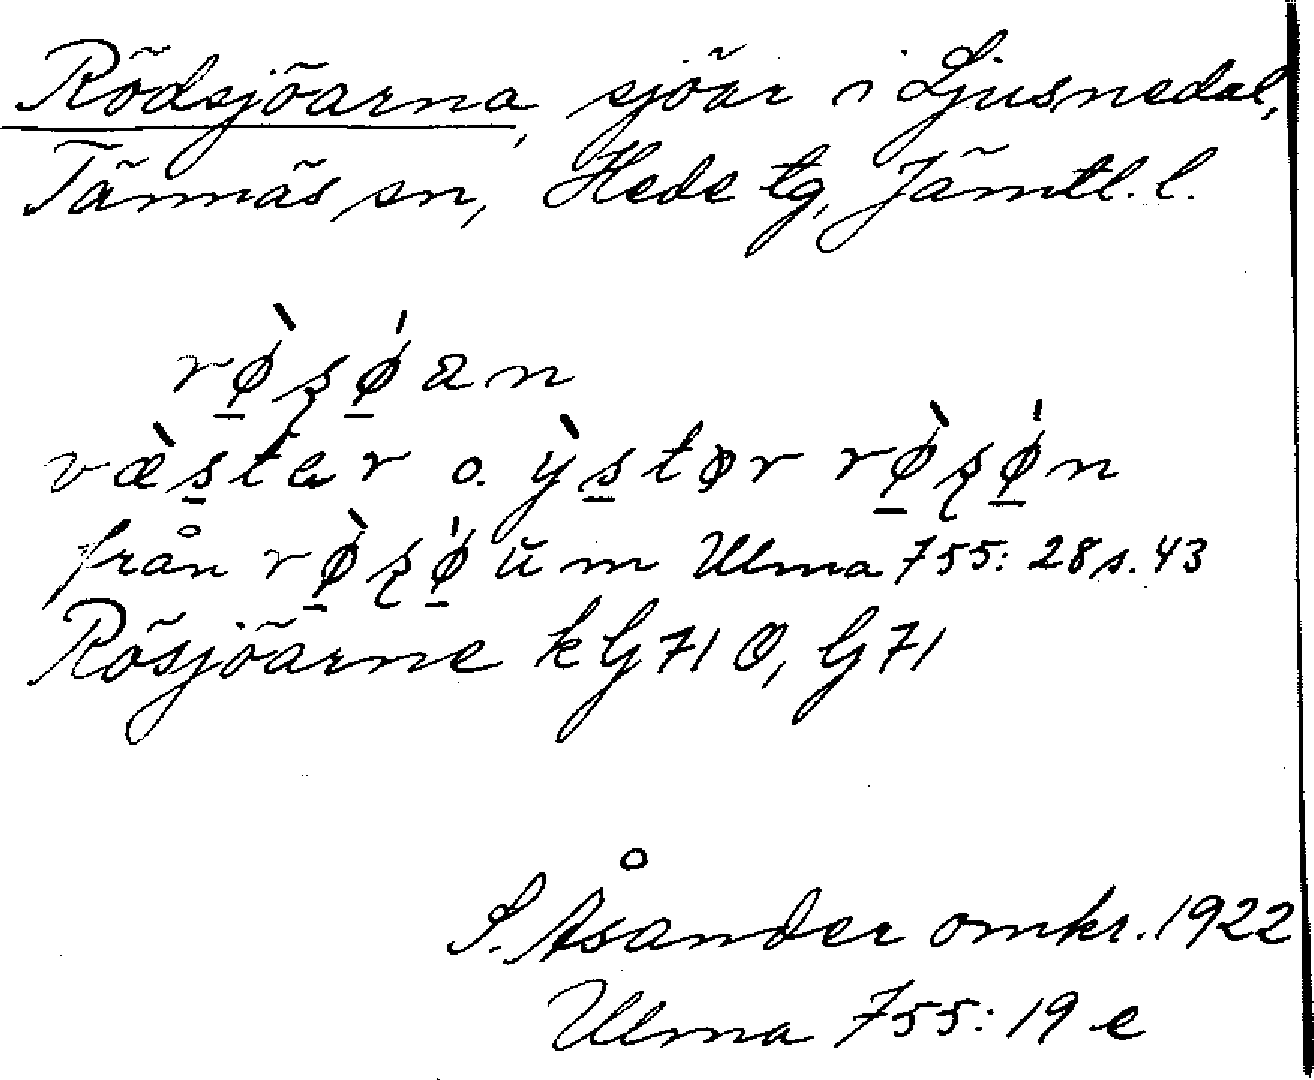 Rödsjöarna, sjöar i Ljusnedal,
Tännäs sn, Hede tg, Jämtl. l.
rø̲̀ʂǿ̲an
væ̀s̲tar o. ỳs̲tør rø̲̀ʂǿ̲n
från rø̲̀ʂǿ̲ŭm Ulma 755: 28 s. 43
Rösjöarne k G 71 O, G 71
S. Åsander omkr. 1922
Ulma 755: 19 e